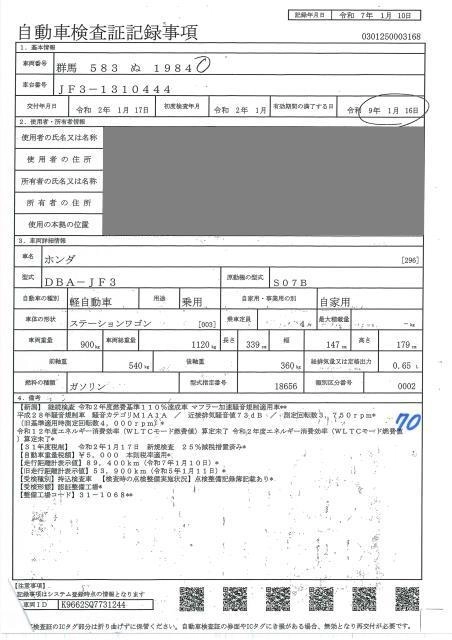 記録年月日 令和 7年 1月 10日
自動車検査証記録事項
0301250003168
1. 基本情報
車両番号 群馬 583 ぬ 1984
車台番号 JF3-1310444
交付年月日 令和 2年 1月 17日 初度検査年月 令和 2年 1月 有効期間の満了する日 令和 9年 1月 16日
2. 使用者・所有者情報
使用者の氏名又は名称
使用者の住所
所有者の氏名又は名称
所有者の住所
使用の本拠の位置
3. 車両詳細情報
車名 ホンダ [296]
型式 DBA-JF3 原動機の型式 S07B
自動車の種別 軽自動車 用途 乗用 自家用・事業用の別 自家用
車体の形状 ステーションワゴン [003] 乗車定員 4人 最大積載量 -kg
車両重量 900kg 車両総重量 1120kg 長さ 339cm 幅 147cm 高さ 179cm
前軸重 540kg 後軸重 360kg 総排気量又は定格出力 0.65L
燃料の種類 ガソリン 型式指定番号 18656 類別区分番号 0002
4. 備考
【新潟】 継続検査 令和2年度燃費基準110%達成車 マフラー加速騒音規制適用車*
平成28年騒音規制車 騒音カテゴリM1A1A / 近接排気騒音値73dB / 測定回転数3,750rpm*
(旧基準適用時測定回転数4,000rpm)*
令和12年度エネルギー消費効率(WLTCモード燃費値)算定未了 令和2年度エネルギー消費効率(WLTCモード燃費値)算定未了*
70
【31年度税制】 令和2年1月17日 新規検査 25%減税措置済み*
【自動車重量税額】¥5,000 本則税率適用*
【走行距離計表示値】89,400km(令和7年1月10日)*
【旧走行距離計表示値】53,900km(令和5年1月11日)*
【受検種別】持込検査車 【検査時の点検整備実施状況】点検整備記録簿記載あり*
【受検形態】認証整備工場*
【整備工場コード】31-1068**
【注意事項】
記録事項はシステム登録時点の情報となります
車両ID K9662SQ7731244
検査証のICタグ部分は折り曲げずに保管ください。自動車検査証の券面やICタグにき損がある場合、無効となり再交付が必要です。